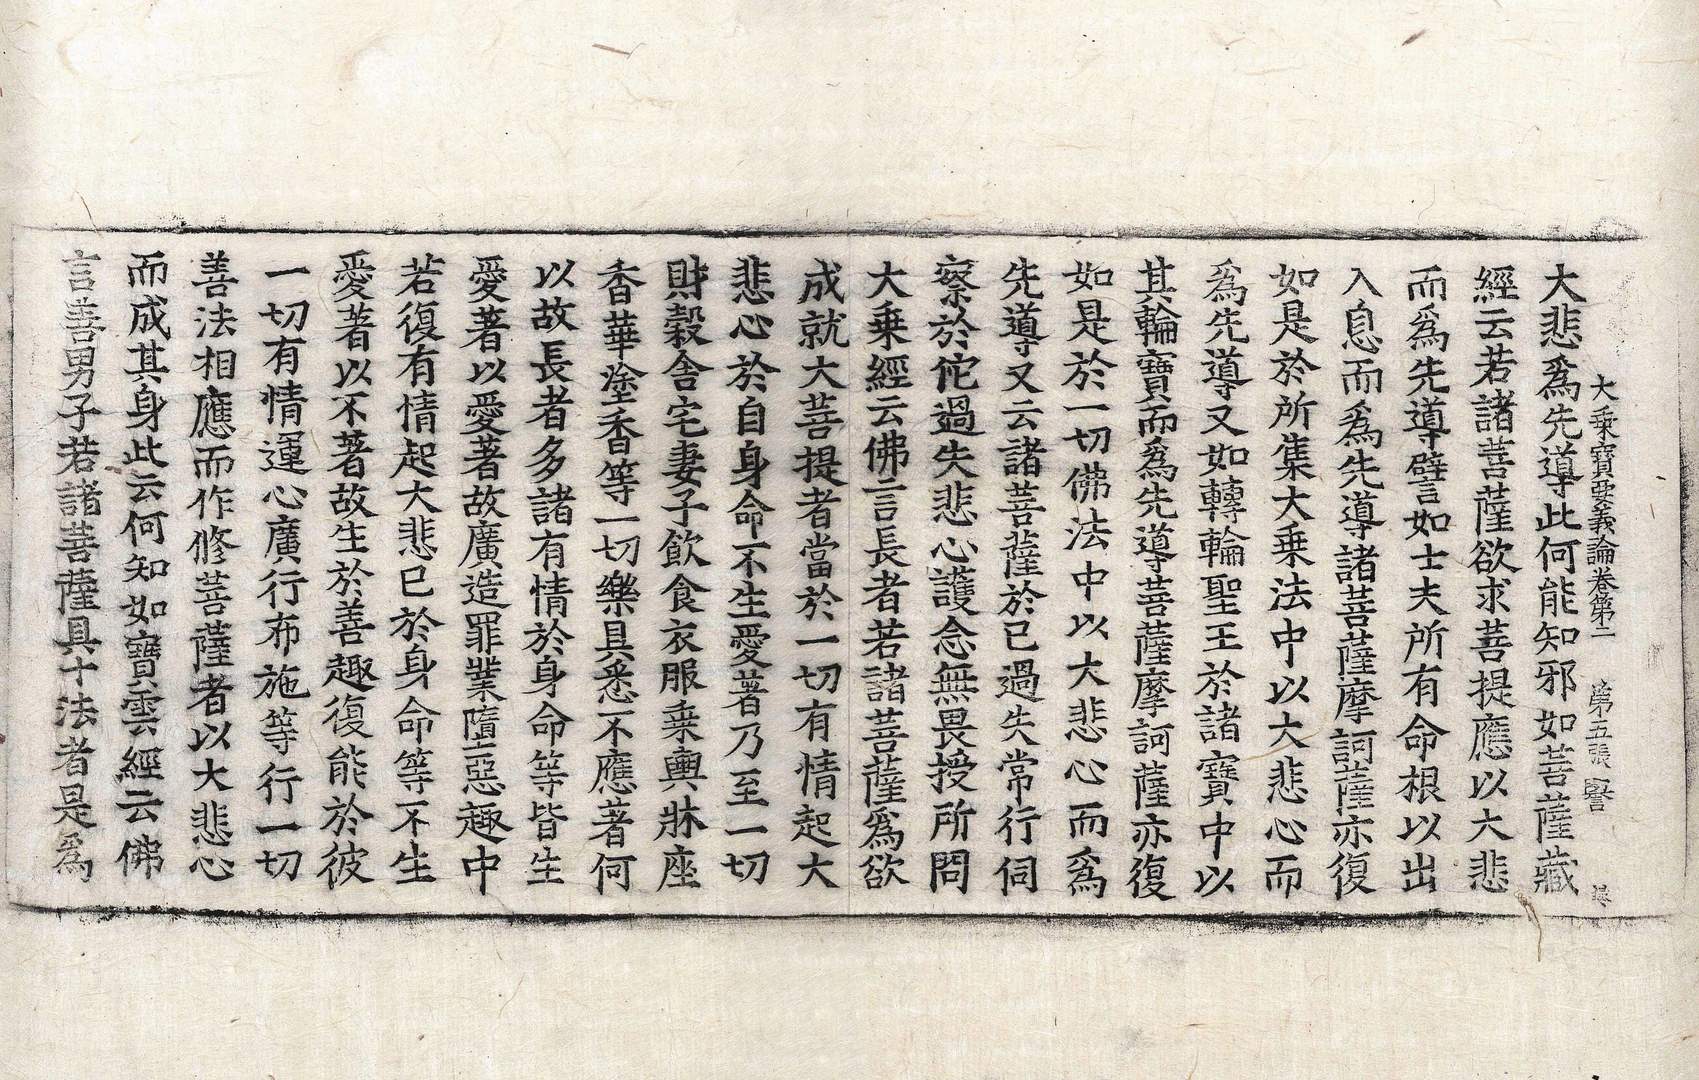 大乗寶要義論卷第二 第五張 響
大悲爲先導此何能知邪如菩薩藏
經云若諸菩薩欲求菩提應以大悲
而爲先導譬如士夫所有命根以出
入息而爲先導諸菩薩摩訶薩亦復
如是於所集大乗法中以大悲心而
爲先導又如轉輪聖王於諸寶中以
其輪寶而爲先導菩薩摩訶薩亦復
如是於一切佛法中以大悲心而爲
先導又云諸菩薩於已過失常行伺
察於佗過失悲心護念無畏授所問
大乗經云佛言長者若諸菩薩爲欲
成就大菩提者當於一切有情起大
悲心於自身命不生愛著乃至一切
財穀舍宅妻子飲食衣服乗輿牀座
香華塗香等一切樂具悉不應著何
以故長者多諸有情於身命等皆生
愛著以愛著故廣造罪業墮惡趣中
若復有情起大悲已於身命等不生
愛著以不著故生於善趣復能於彼
一切有情運心廣行布施等行一切
善法相應而作修菩薩者以大悲心
而成其身此云何知如寶雲經云佛
言善男子若諸菩薩具十法者是爲